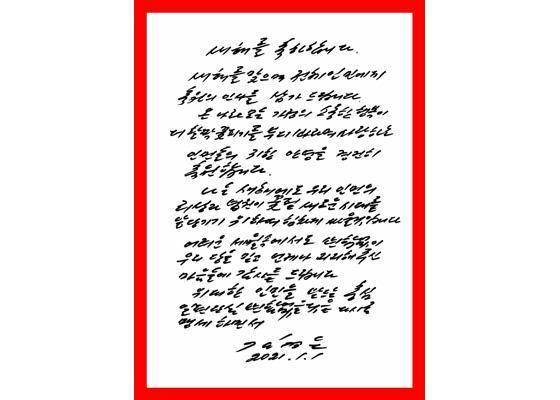 새해를 축하합니다.
새해를 맞으며 전체인민에게
축원의 인사를 삼가 드립니다.
온 나라 모든 가정의 소중한 행복이
더 활짝 꽃피기를 부디 바라며 사랑하는
인민들의 귀한 안녕을 경건히
축원합니다.
나는 새해에도 우리 인민의
리상과 념원이 꽃필 새로운 시대를
앞당기기 위하여 힘차게 싸울것입니다
어려운 세월속에서도 변함없이
우리 당을 믿고 언제나 지지해주신
마음들에 감사를 드립니다
위대한 인민을 받드는 충심
일편단심 변함없을것을 다시금
맹세하면서
김정은
2021.1.1